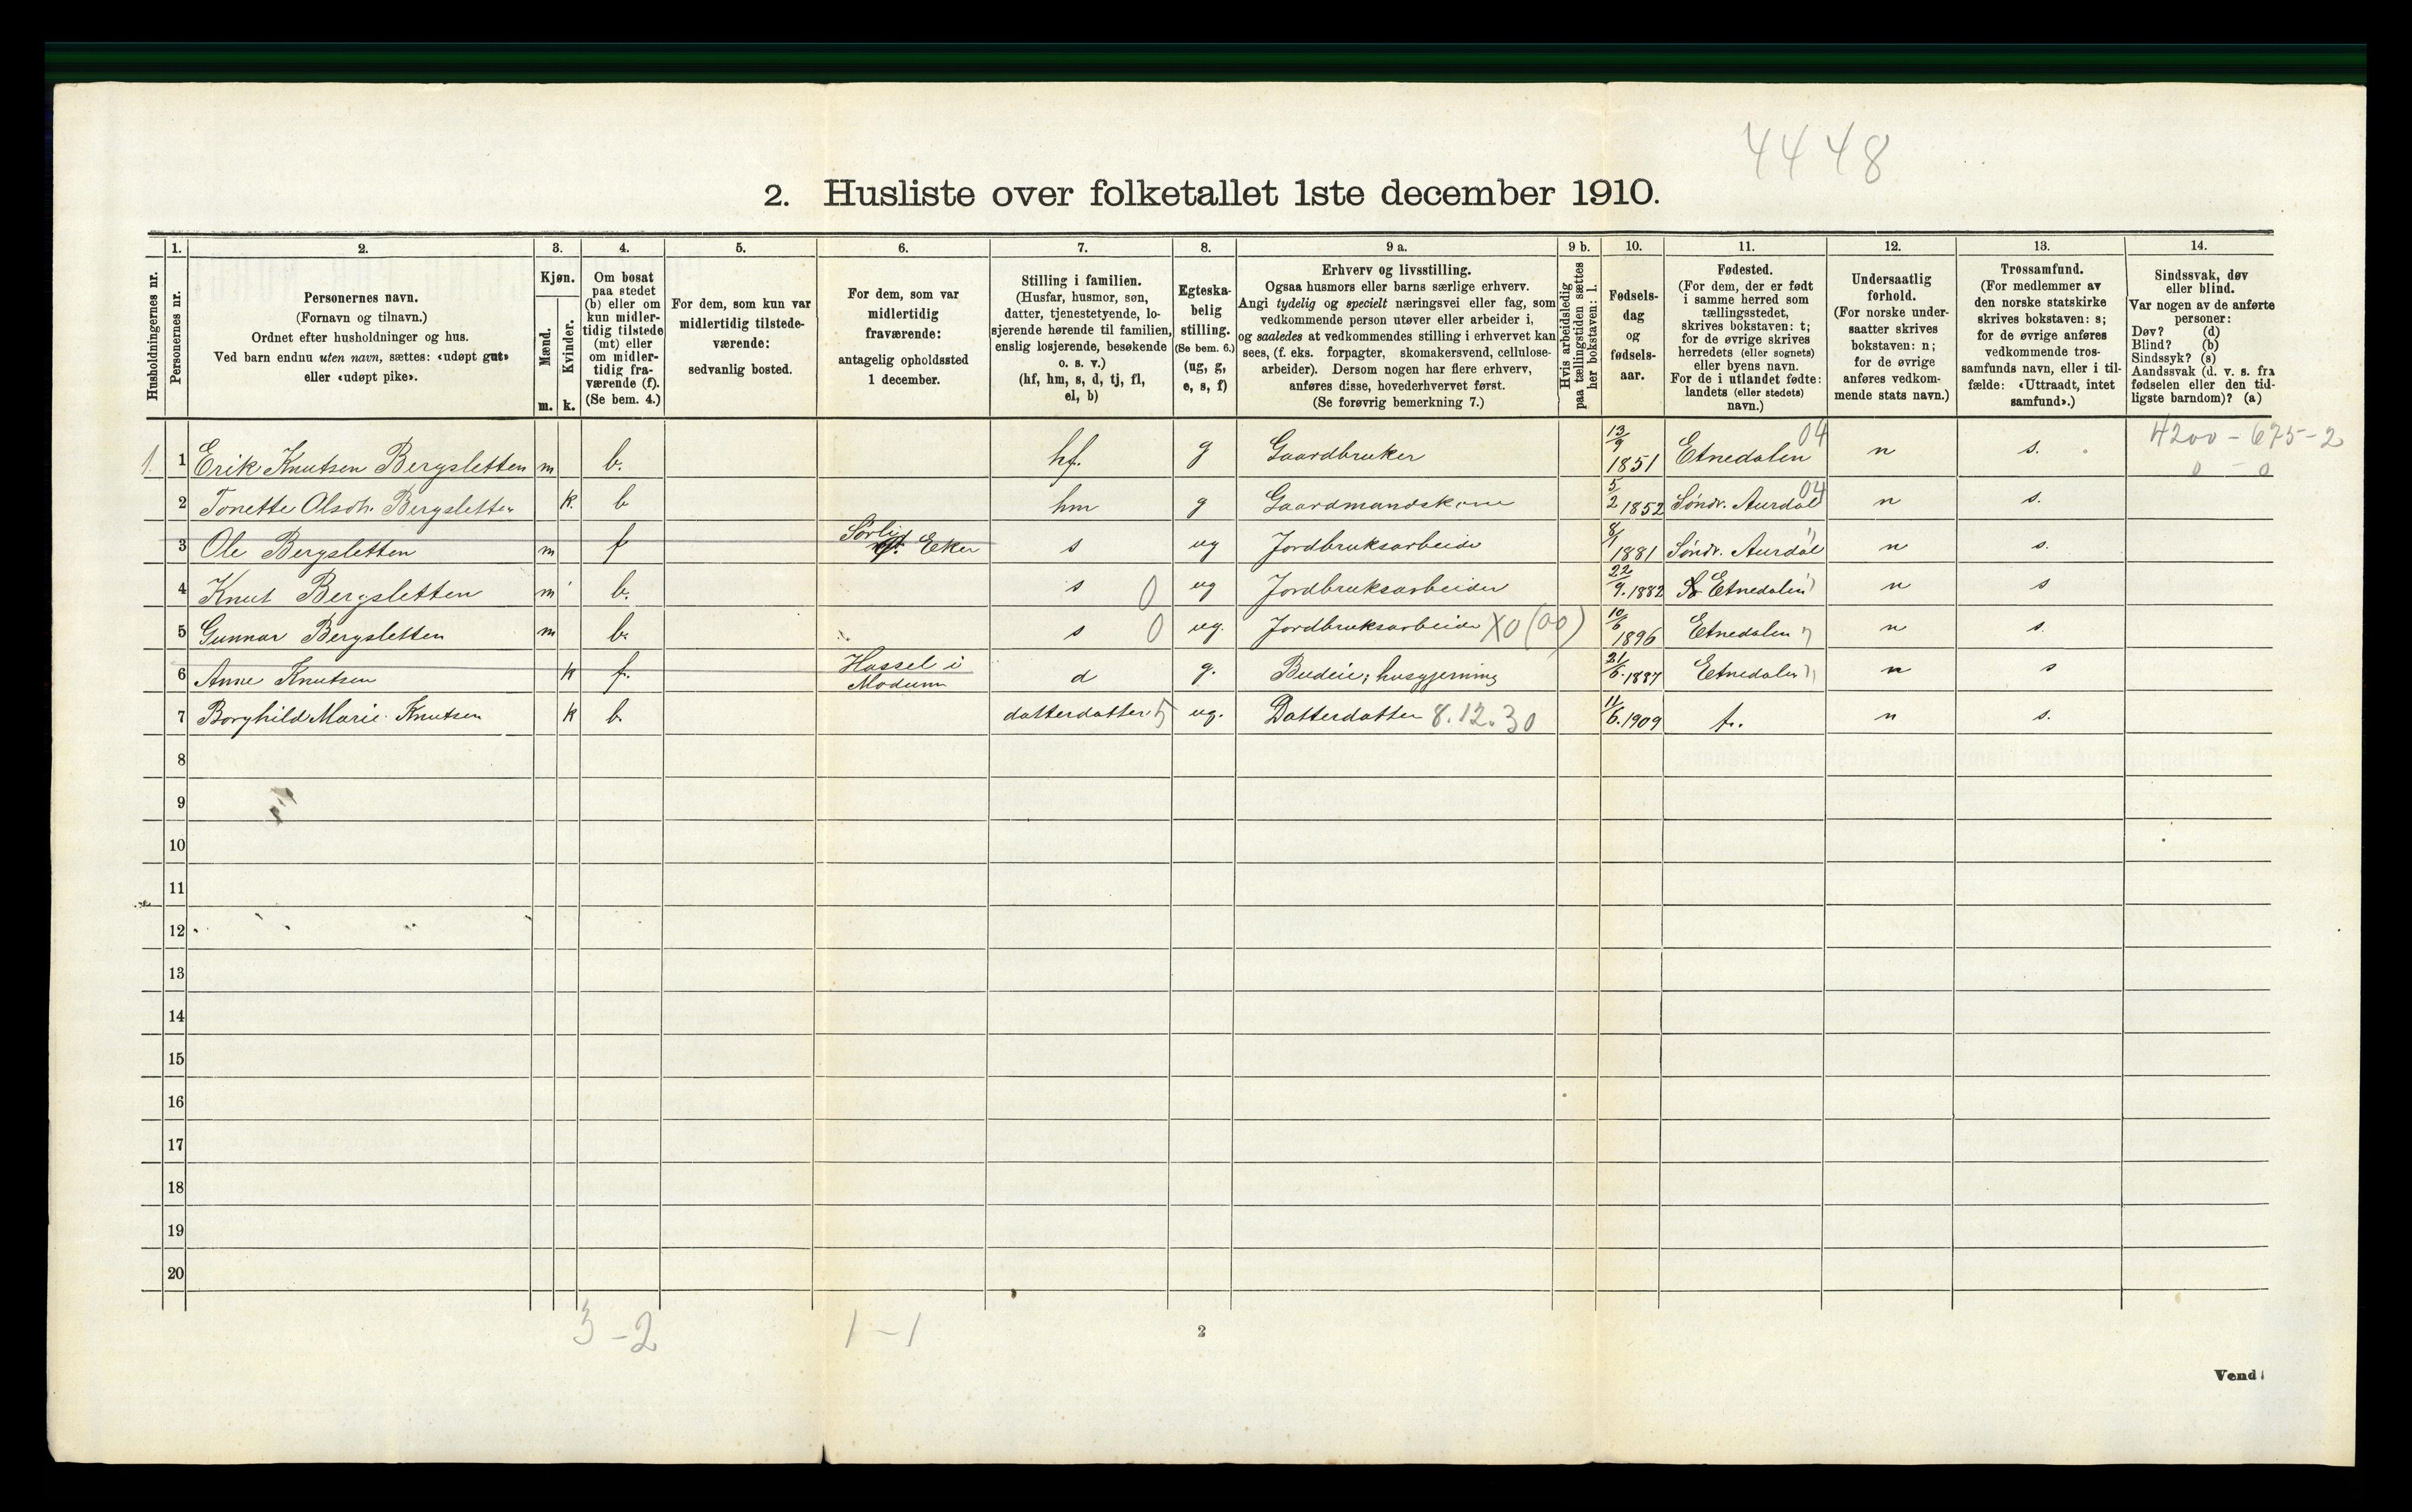 4448
2. Husliste over folketallet 1ste december 1910.
Husholdningernes nr.
1. Personernes nr.
2. Personernes navn.
(Fornavn og tilnavn.)
Ordnet efter husholdninger og hus.
Ved barn endnu uten navn, sættes: «udøpt gut»
eller «udøpt pike».
3. Kjøn.
Mænd. m.
Kvinder. k.
4. Om bosat
paa stedet
(b) eller om
kun midler-
tidig tilstede
(mt) eller
om midler-
tidig fra-
værende (f).
(Se bem. 4.)
5. For dem, som kun var
midlertidig tilstede-
værende:
sedvanlig bosted.
6. For dem, som var
midlertidig
fraværende:
antagelig opholdssted
1 december.
7. Stilling i familien.
(Husfar, husmor, søn,
datter, tjenestetyende, lo-
sjerende hørende til familien,
enslig losjerende, besøkende
o. s. v.)
(hf, hm, s, d, tj, fl,
el, b)
8. Egteska-
belig
stilling.
(Se bem. 6.)
(ug, g,
e, s, f)
9 a. Erhverv og livsstilling.
Ogsaa husmors eller barns særlige erhverv.
Angi tydelig og specielt næringsvei eller fag, som
vedkommende person utøver eller arbeider i,
og saaledes at vedkommendes stilling i erhvervet kan
sees, (f. eks. forpagter, skomakersvend, cellulose-
arbeider). Dersom nogen har flere erhverv,
anføres disse, hovederhvervet først.
(Se forøvrig bemerkning 7.)
9 b. Hvis arbeidsledig
paa tællingstiden sættes
her bokstaven: l.
10. Fødsels-
dag
og
fødsels-
aar.
11. Fødested.
(For dem, der er født
i samme herred som
tællingsstedet,
skrives bokstaven: t;
for de øvrige skrives
herredets (eller sognets)
eller byens navn.
For de i utlandet fødte:
landets (eller stedets)
navn.)
12. Undersaatlig
forhold.
(For norske under-
saatter skrives
bokstaven: n;
for de øvrige
anføres vedkom-
mende stats navn.)
13. Trossamfund.
(For medlemmer av
den norske statskirke
skrives bokstaven: s;
for de øvrige anføres
vedkommende tros-
samfunds navn, eller i til-
fælde: «Uttraadt, intet
samfund».)
14. Sindssvak, døv
eller blind.
Var nogen av de anførte
personer:
Døv? (d)
Blind? (b)
Sindssyk? (s)
Aandssvak (d. v. s. fra
fødselen eller den tid-
ligste barndom)? (a)
1. 1 Erik Knutsen Bergsletten m b. hf. g Gaardbruker 13/9 1851 Etnedalen 04 n s. 4200-675-2
0 - 0
2 Tonette Olsdtr. Bergsletten k. b hm g Gaardmandskone 5/2 1852 Søndr. Aurdal 04 n s.
3 Ole Bergsletten m f Sørlid Eker s ug Jordbruksarbeide 8/1 1881 Søndr. Aurdal n s.
4 Knut Bergsletten m b. s 0 ug Jordbruksarbeider 22/9. 1882 Etnedalen n s
5 Gunnar Bergsletten m b. s 0 ug. Jordbruksarbeide X0 (00) 10/6 1896 Etnedalen n s.
6 Anne Knutsen k f. Hassel i
Modum d g. Budeie; husgjerning 21/6. 1887 Etnedalen n s
7 Borghild Marie Knutsen k b. datterdatter 5 ug. Datterdatter 8.12.30 11/6. 1909 t. n s.
8
9
10
11
12
13
14
15
16
17
18
19
20
3-2 1-1
2
Vend!